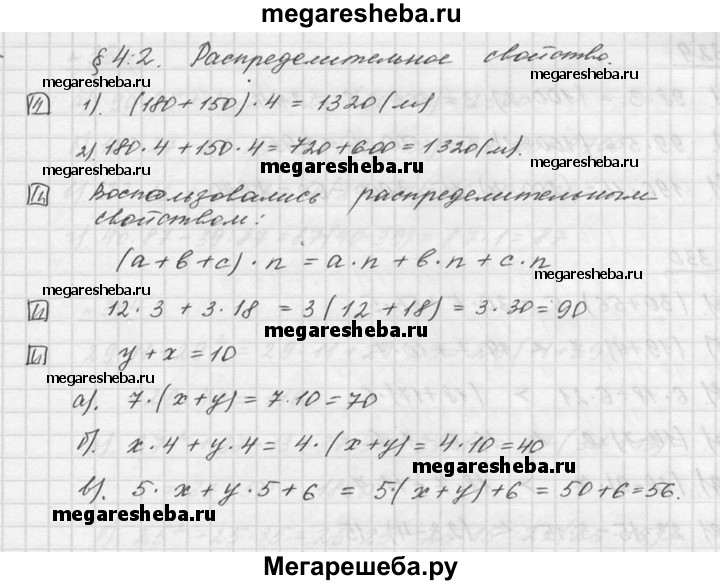 megaresheba.ru
§ 4.2. Распределительное свойство.
megaresheba.ru megaresheba.ru
1). (180+150)·4 = 1320 (м)
2). 180·4 + 150·4 = 720 + 600 = 1320 (м).
megaresheba.ru megaresheba.ru
Воспользовались распределительным
свойством:
(a+b+c)·n = a·n + b·n + c·n
megaresheba.ru megaresheba.ru
12·3 + 3·18 = 3(12+18) = 3·30 = 90
megaresheba.ru
y + x = 10
megaresheba.ru megaresheba.ru
а). 7·(x+y) = 7·10 = 70
б). x·4 + y·4 = 4·(x+y) = 4·10 = 40
megaresheba.ru
в). 5·x + y·5 + 6 = 5(x+y) + 6 = 50 + 6 = 56.
megaresheba.ru
Мегарешеба.ру